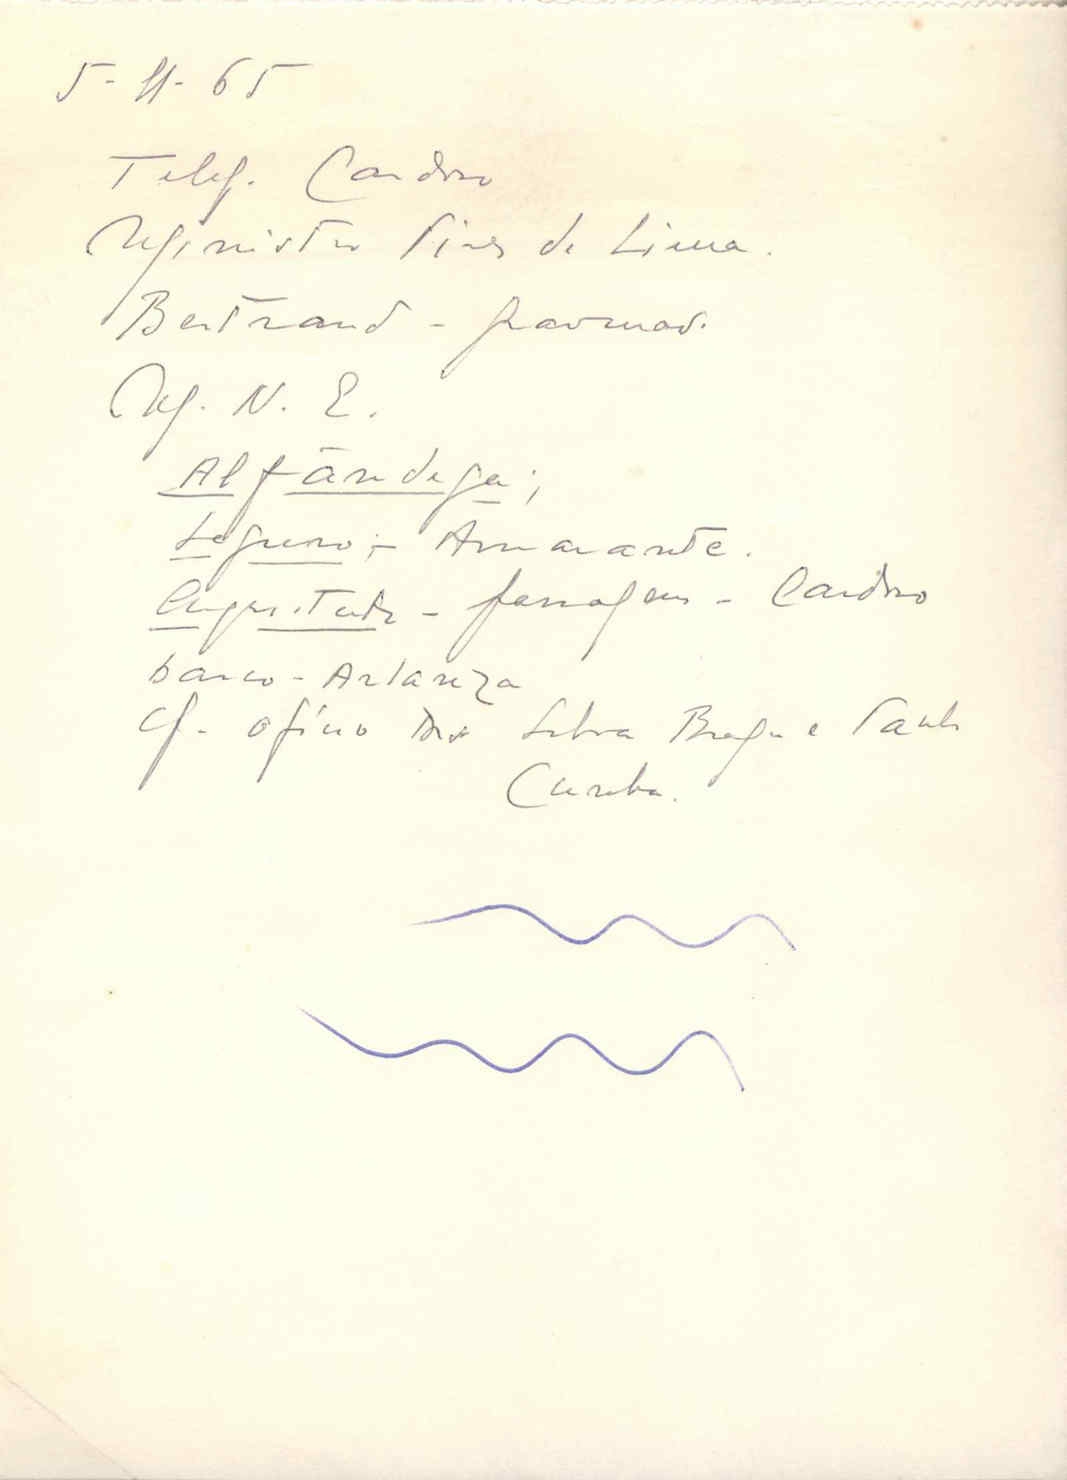 5-11-65
Telef. Cardoso
Ministro Pires de Lima.
Bertrand - gravuras.
M. N. E.
Alfândega;
Seguro; - Amarante.
- ferragens - Cardoso
barco - Arlanza
cf. ofício Silva Braga e Paulo
Cunha.